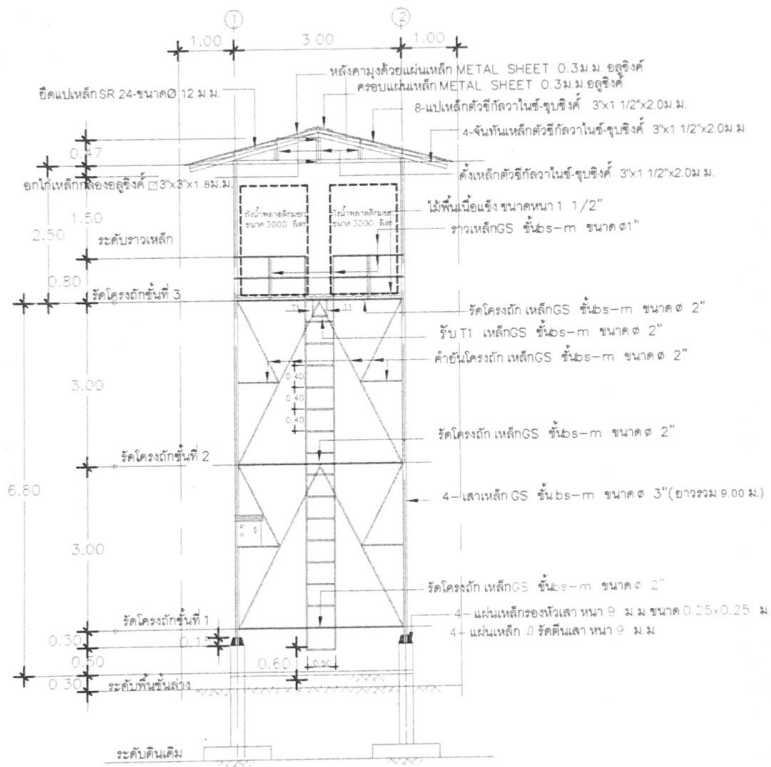 1 2
1.00 3.00 1.00
หลังคามุงด้วยแผ่นเหล็ก METAL SHEET 0.3 ม.ม. อลูซิงค์
ครอบแผ่นเหล็ก METAL SHEET 0.3 ม.ม. อลูซิงค์
ยึดแปเหล็ก SR 24-ขนาดØ 12 ม.ม.
8-แปเหล็กตัวซีกัลวาไนซ์-ชุบซิงค์ 3"x1 1/2"x2.0ม.ม.
4-จันทันเหล็กตัวซีกัลวาไนซ์-ชุบซิงค์ 3"x1 1/2"x2.0ม.ม.
ดั้งเหล็กตัวซีกัลวาไนซ์-ชุบซิงค์ 3"x1 1/2"x2.0ม.ม.
อกไก่เหล็กกล่องอลูซิงค์ □3"x3"x1.8ม.ม.
ไม้พื้นเนื้อแข็ง ขนาดหนา 1 1/2"
ขนาด 3000 ลิตร ขนาด 3000 ลิตร
1.50
2.50
ราวเหล็กGS ชั้นbs-m ขนาด ø1"
ระดับราวเหล็ก
0.80
รัดโครงถักชั้นที่ 3
T1 T1
รัดโครงถัก เหล็กGS ชั้นbs-m ขนาด ø 2"
รับ T1 เหล็กGS ชั้นbs-m ขนาด ø 2"
ค้ำยันโครงถัก เหล็กGS ชั้นbs-m ขนาด ø 2"
0.40
3.00
0.40
0.40
รัดโครงถัก เหล็กGS ชั้นbs-m ขนาด ø 2"
รัดโครงถักชั้นที่ 2
6.80
4-เสาเหล็ก GS ชั้น bs-m ขนาด ø 3" (ยาวรวม 9.00 ม.)
3.00
รัดโครงถัก เหล็กGS ชั้นbs-m ขนาด ø 2"
รัดโครงถักชั้นที่ 1
4- แผ่นเหล็กรองหัวเสา หนา 9 ม.ม ขนาด 0.25x0.25 ม
0.30 0.15
4- แผ่นเหล็ก รัดตีนเสา หนา 9 ม.ม
0.50 0.60 0.50
0.30 ระดับพื้นชั้นล่าง
ระดับดินเดิม